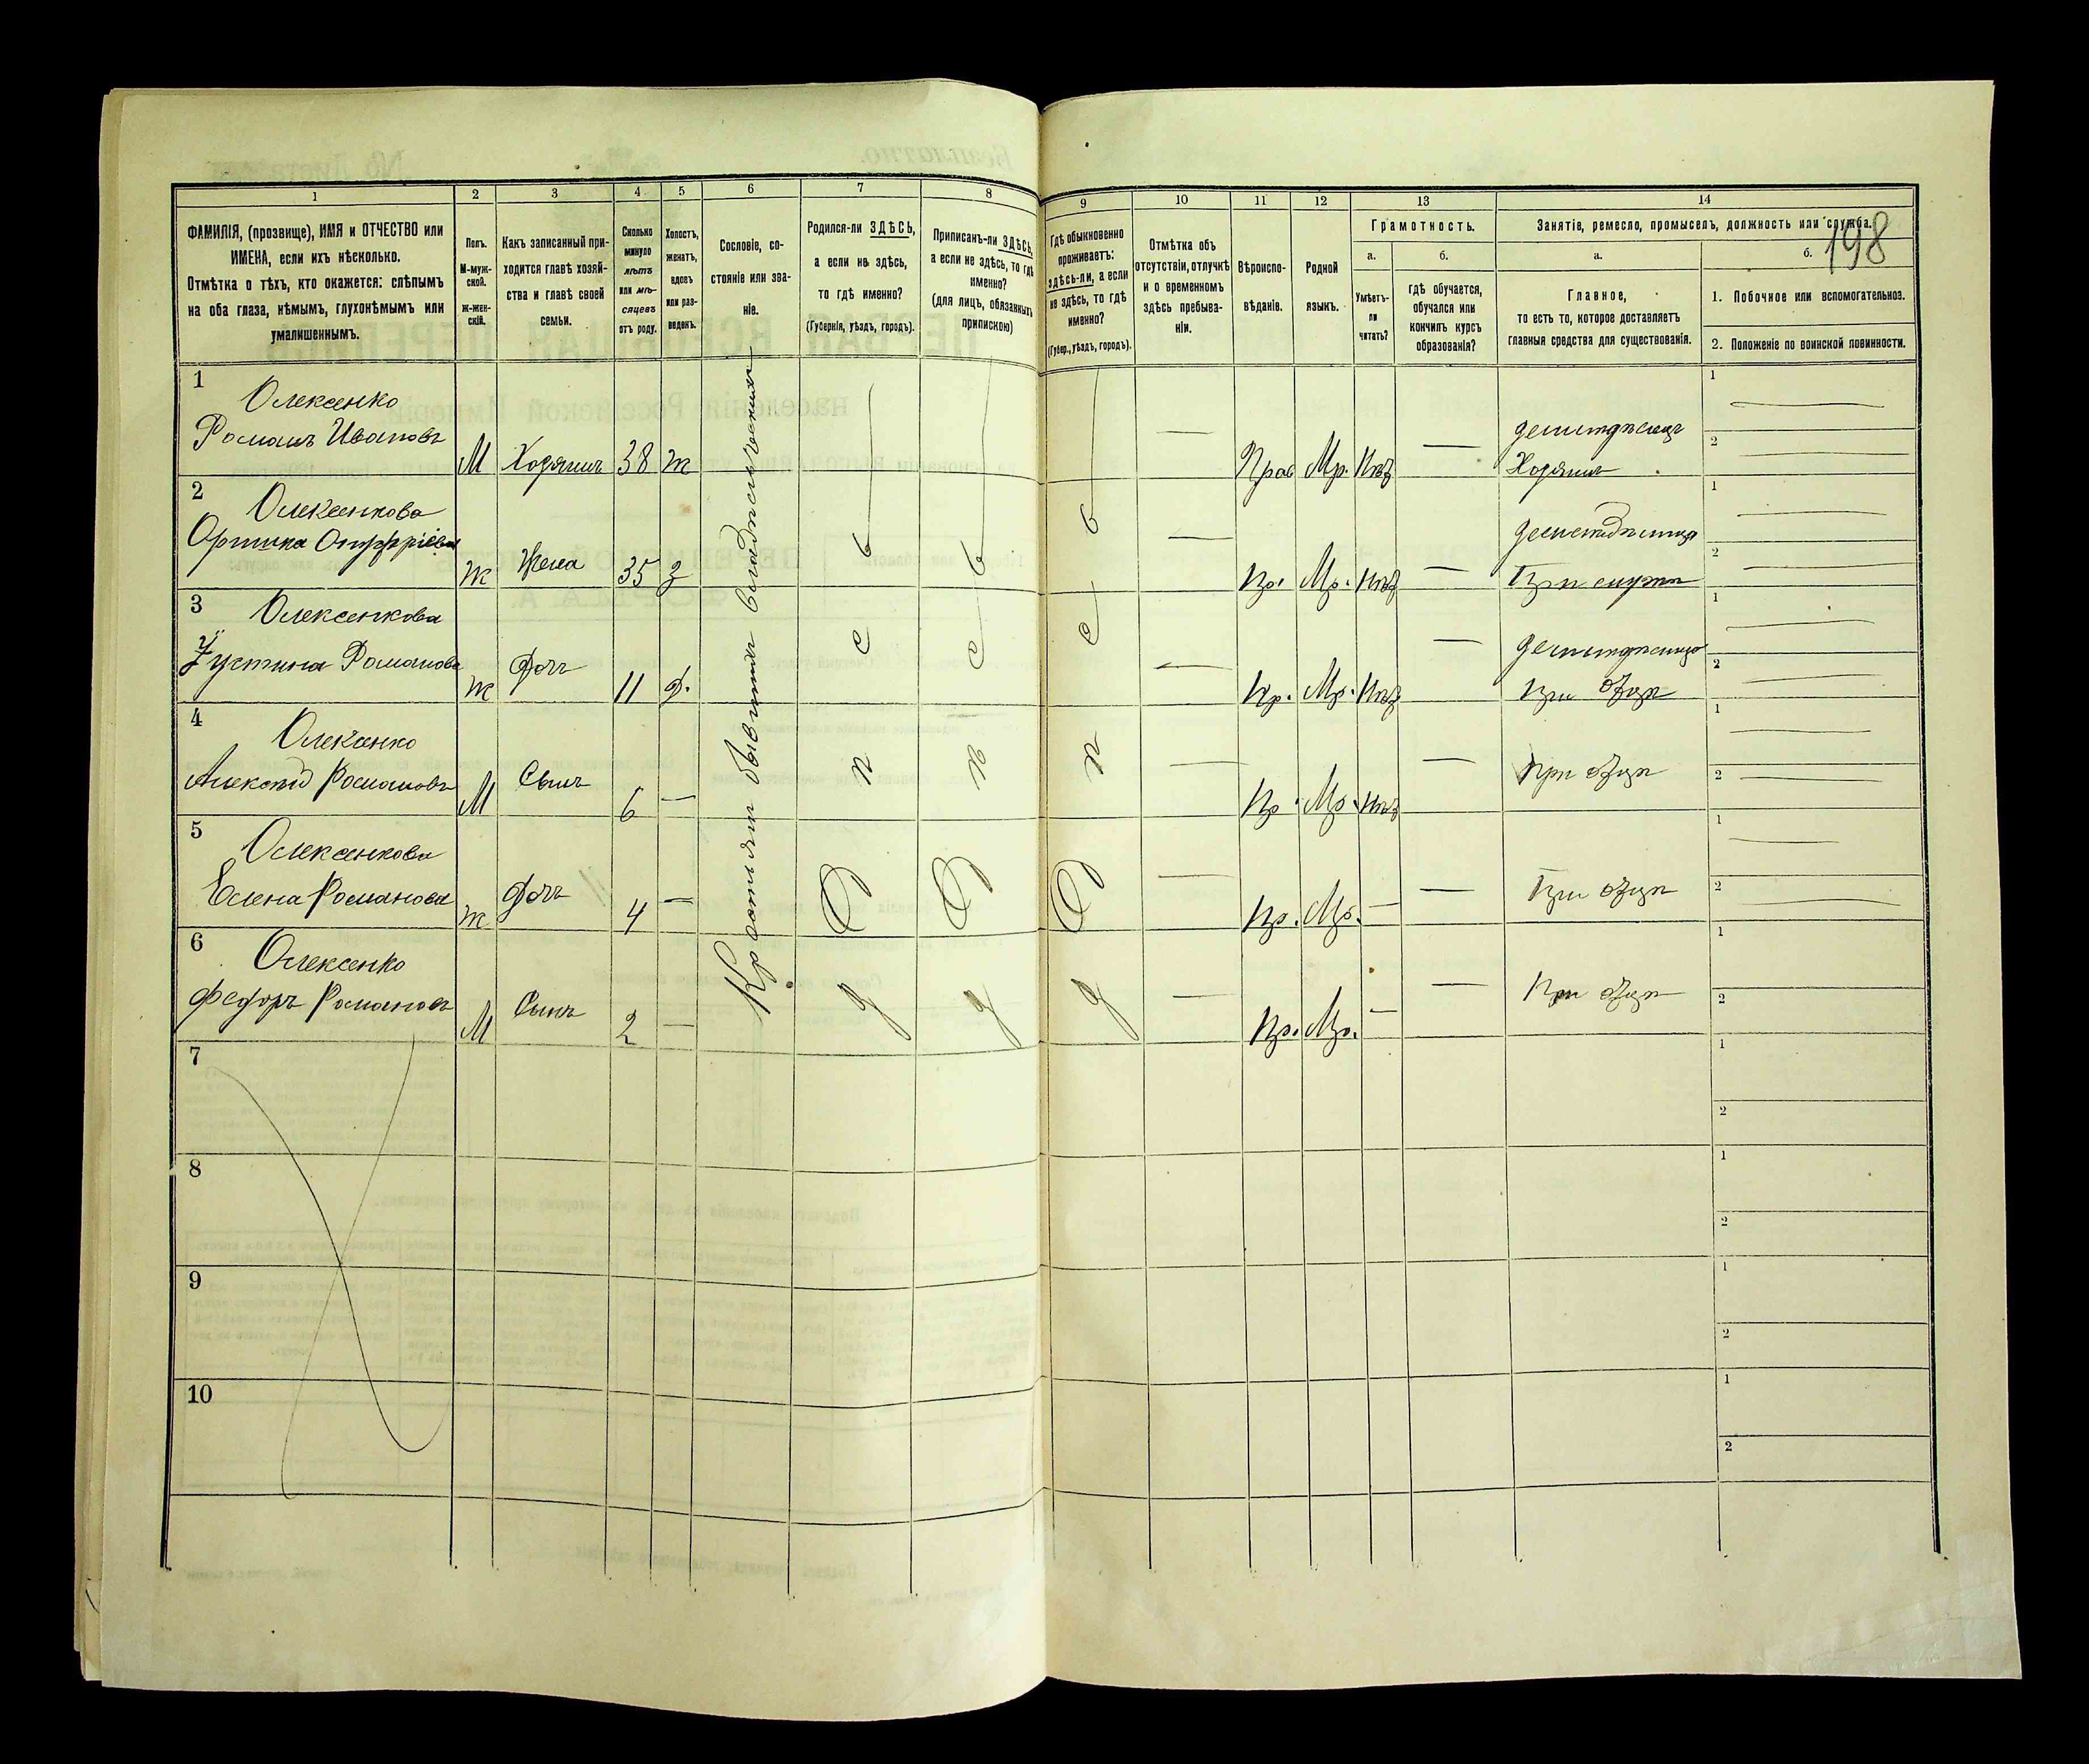 198
1 2 3 4 5 6 7 8 9 10 11 12 13 14
ФАМИЛІЯ, (прозвище), ИМЯ и ОТЧЕСТВО или
ИМЕНА, если ихъ нѣсколько.
Отмѣтка о тѣхъ, кто окажется: слѣпымъ
на оба глаза, нѣмымъ, глухонѣмымъ или
умалишеннымъ.
Полъ.
М-муж-
ской.
Ж-жен-
скій.
Какъ записанный при-
ходится главѣ хозяй-
ства и главѣ своей
семьи.
Сколько
минуло
лѣтъ
или мѣ-
сяцевъ
отъ роду.
Холостъ,
женатъ,
вдовъ
или раз-
веденъ.
Сословіе, со-
стояніе или зва-
ніе.
Родился-ли ЗДѢСЬ,
а если не здѣсь,
то гдѣ именно?
(Губернія, уѣздъ, городъ).
Приписанъ-ли ЗДѢСЬ,
а если не здѣсь, то гдѣ
именно?
(для лицъ, обязанныхъ
припискою)
Гдѣ обыкновенно
проживаетъ:
здѣсь-ли, а если
не здѣсь, то гдѣ
именно?
(Губер., уѣздъ, городъ).
Отмѣтка объ
отсутствіи, отлучкѣ
и о временномъ
здѣсь пребыва-
ніи.
Вѣроиспо-
вѣданіе.
Родной
языкъ.
Грамотность.
а.
Умѣетъ-
ли
читать?
б.
гдѣ обучается,
обучался или
кончилъ курсъ
образованія?
Занятіе, ремесло, промыселъ, должность или служба.
а.
Главное,
то есть то, которое доставляетъ
главныя средства для существованія.
б.
1. Побочное или вспомогательное.
2. Положеніе по воинской повинности.
Крестьян бывших
здѣсь
здѣсь
здѣсь
1 Олексенко
Романъ Ивановъ
М Хозяинъ 38 ж Прав Мр. Нѣт
Хозяинъ
1
2
2 Олексенкова
Ж Жена 35 з Пр. Мр. Нѣт
При мужѣ
1
2
3 Олексенкова
Устина Романова
Ж Дочь 11 д. Пр. Мр. Нѣт
При отцѣ
1
2
4 Олексенко
Алексѣй Романовъ
М Сынъ 6 — Пр. Мр. Нѣт — При отцѣ
1
2
5 Олексенкова
Елена Романова
Ж Дочь 4 — Пр. Мр. — — При отцѣ
1
2
6 Олексенко
Федоръ Романовъ
М Сынъ 2 — Пр. Мр. — — При отцѣ
1
2
7
1
2
8
1
2
9
1
2
10
1
2